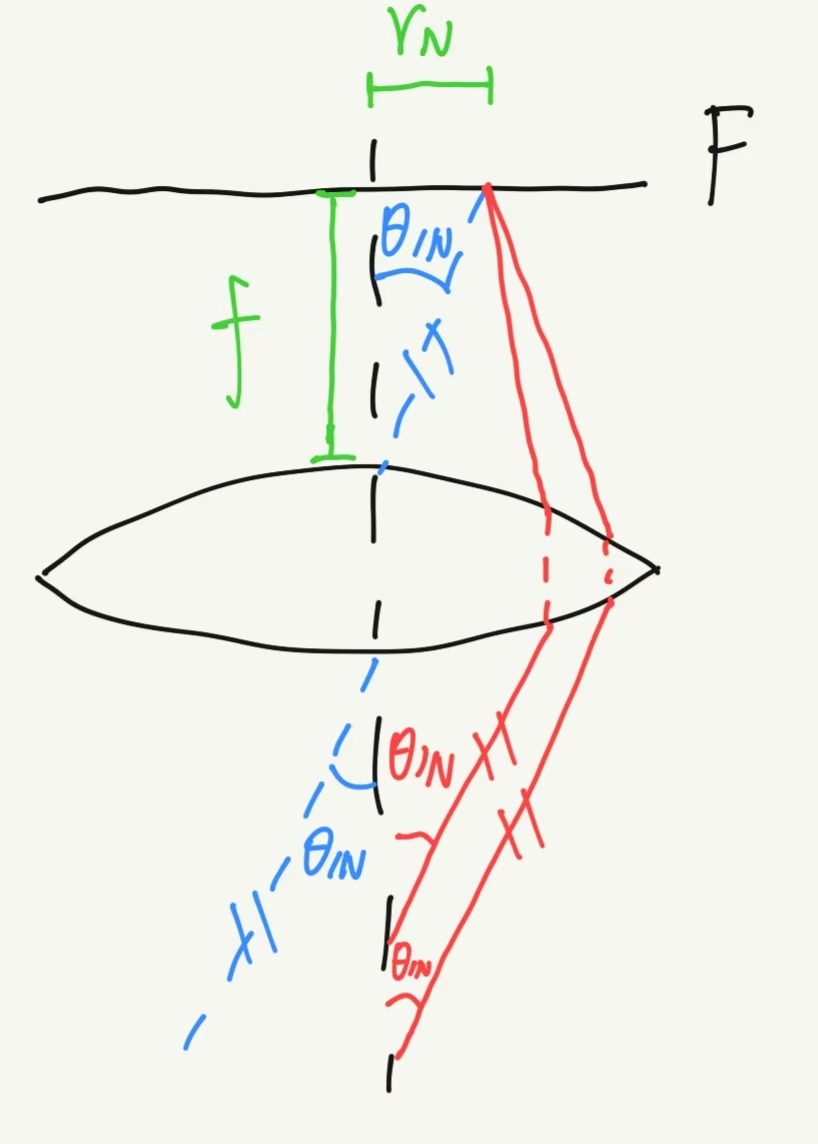 rN
F
θIN
f
θIN
θIN
θIN